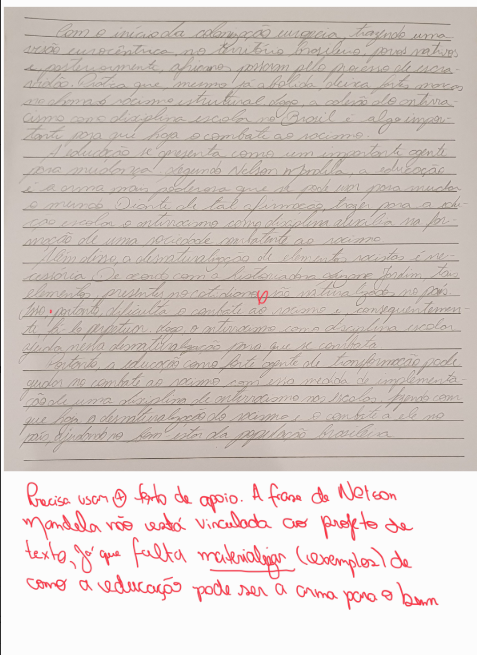 Com o início da colonização europeia, trazendo uma
visão eurocêntrica, no território brasileiro povos nativos
e posteriormente, africanos passaram pelo processo de escra-
vidão. Prática que mesmo já abolida deixa fortes marcas
na forma o racismo estrutural. Logo, a adesão do antirra-
cismo como disciplina escolar no Brasil é algo impor-
tante para que haja o combate ao racismo.
A educação se apresenta como um importante agente
para mudança, segundo Nelson Mandela, a educação
é a arma mais poderosa que se pode usar para mudar
o mundo. Diante de tal afirmação, trazer para a edu-
cação escolar o antirracismo como disciplina auxilia na for-
mação de uma sociedade combatente ao racismo.
Além disso, a desnaturalização de elementos racistas é ne-
cessária. De acordo com a historiadora tais
elementos presentes no cotidiano são naturalizados no país.
Isso, portanto dificulta o combate ao racismo e consequentemen-
te o antirracismo como disciplina escolar
ajuda nessa desnaturalização para que se combata.
Portanto a educação como forte agente de transformação pode
ajudar no combate ao racismo com essa medida de implementa-
ção de uma disciplina de antirracismo nas escolas, fazendo com
que haja a desnaturalização do racismo e o combate a ele no
país, ajudando no bem estar da população brasileira.
Precisa usar o texto de apoio. A frase de Nelson
Mandela não está vinculada ao projeto de
texto, já que falta materializar (exemplos) de
como a educação pode ser a arma para o bem